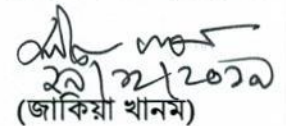 ২৯/১২/২০১৯
(জাকিয়া খানম)